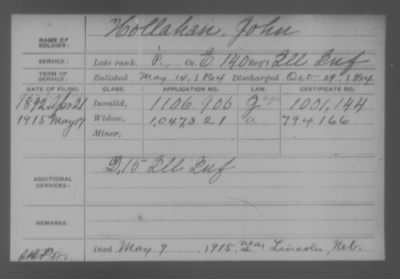 NAME OF SOLDIER: Hollahan, John
SERVICE: Late rank, P., Co. E, 140 Reg't Ill Inf
TERM OF SERVICE: Enlisted May 18, 1864 Discharged Oct 29, 1864
DATE OF FILING. CLASS. APPLICATION NO. LAW. CERTIFICATE NO.
1892 Apr 21 Invalid, 1106 906 1001,144
1915 May 17 Widow, 1,047321 794166
Minor,
ADDITIONAL SERVICES: D, 15 Ill Inf
REMARKS:
Died May 9, 1915, near Lincoln, Neb.